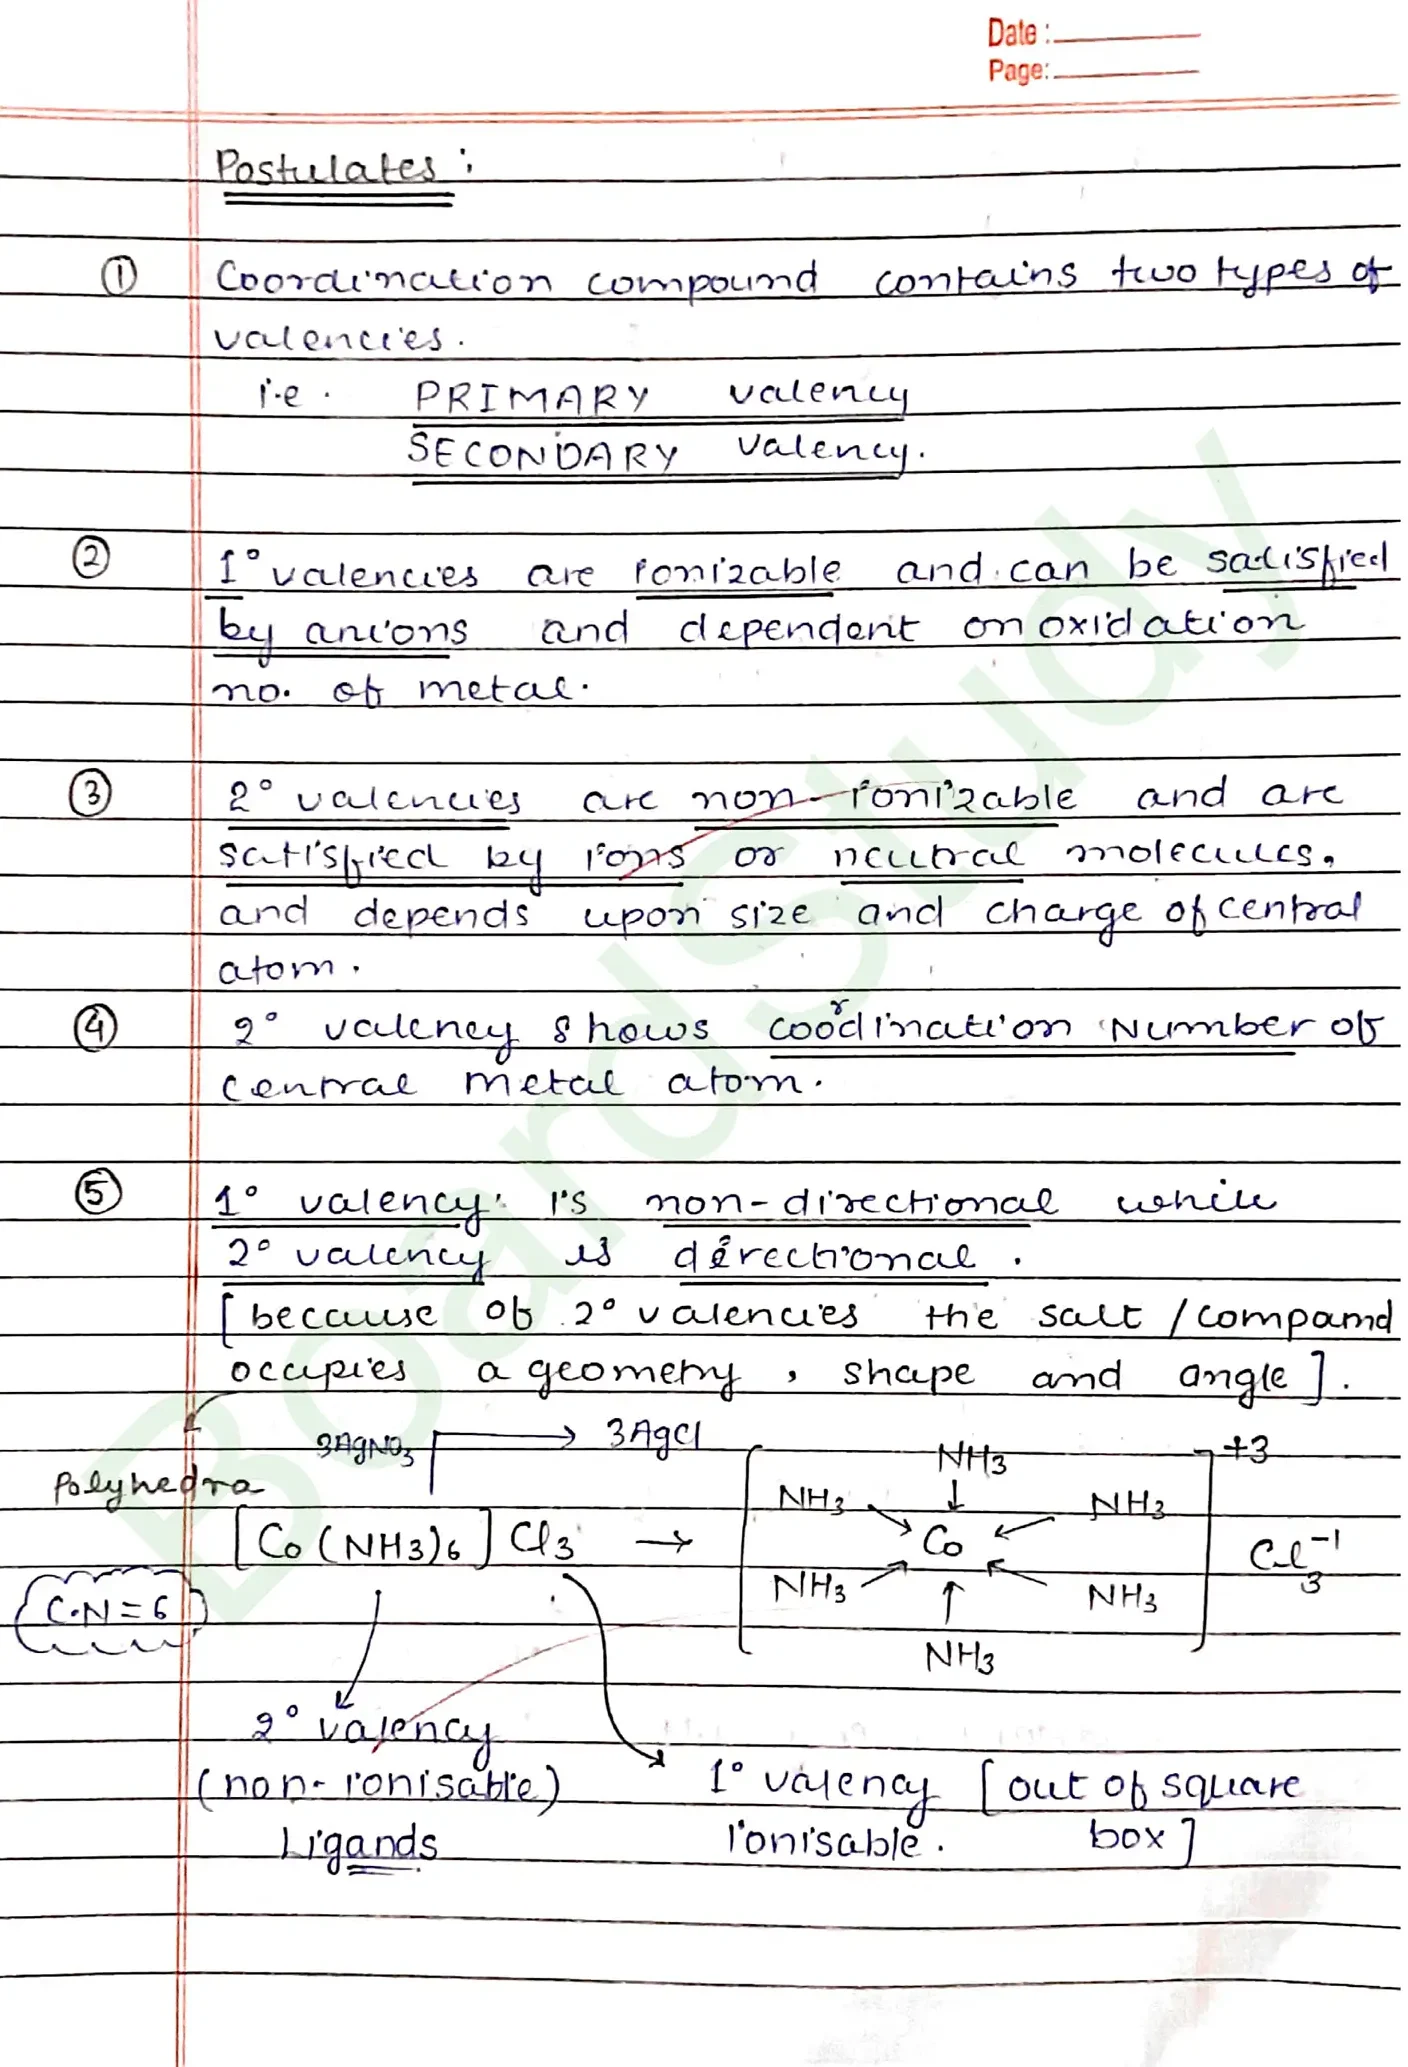 Date :
Page:
Postulates :
① Coordination compound contains two types of
valencies.
i.e. PRIMARY valency
SECONDARY valency.
② 1° valencies are ionizable and can be satisfied
by anions and dependent on oxidation
no. of metal.
③ 2° valencies are non-ionizable and are
satisfied by ions or neutral molecules,
and depends upon size and charge of central
atom.
④ 2° valency shows coordination Number of
central metal atom.
⑤ 1° valency is non-directional while
2° valency is directional.
[because of 2° valencies the salt / compound
occupies a geometry, shape and angle].
3AgNO3 → 3AgCl
Polyhedra
[Co(NH3)6]Cl3 →
NH3 +3
NH3 NH3
Co
Cl3^-1
NH3 NH3
NH3
C.N=6
2° valency
(non-ionisable)
Ligands
1° valency [out of square
ionisable. box]
BoardStudy